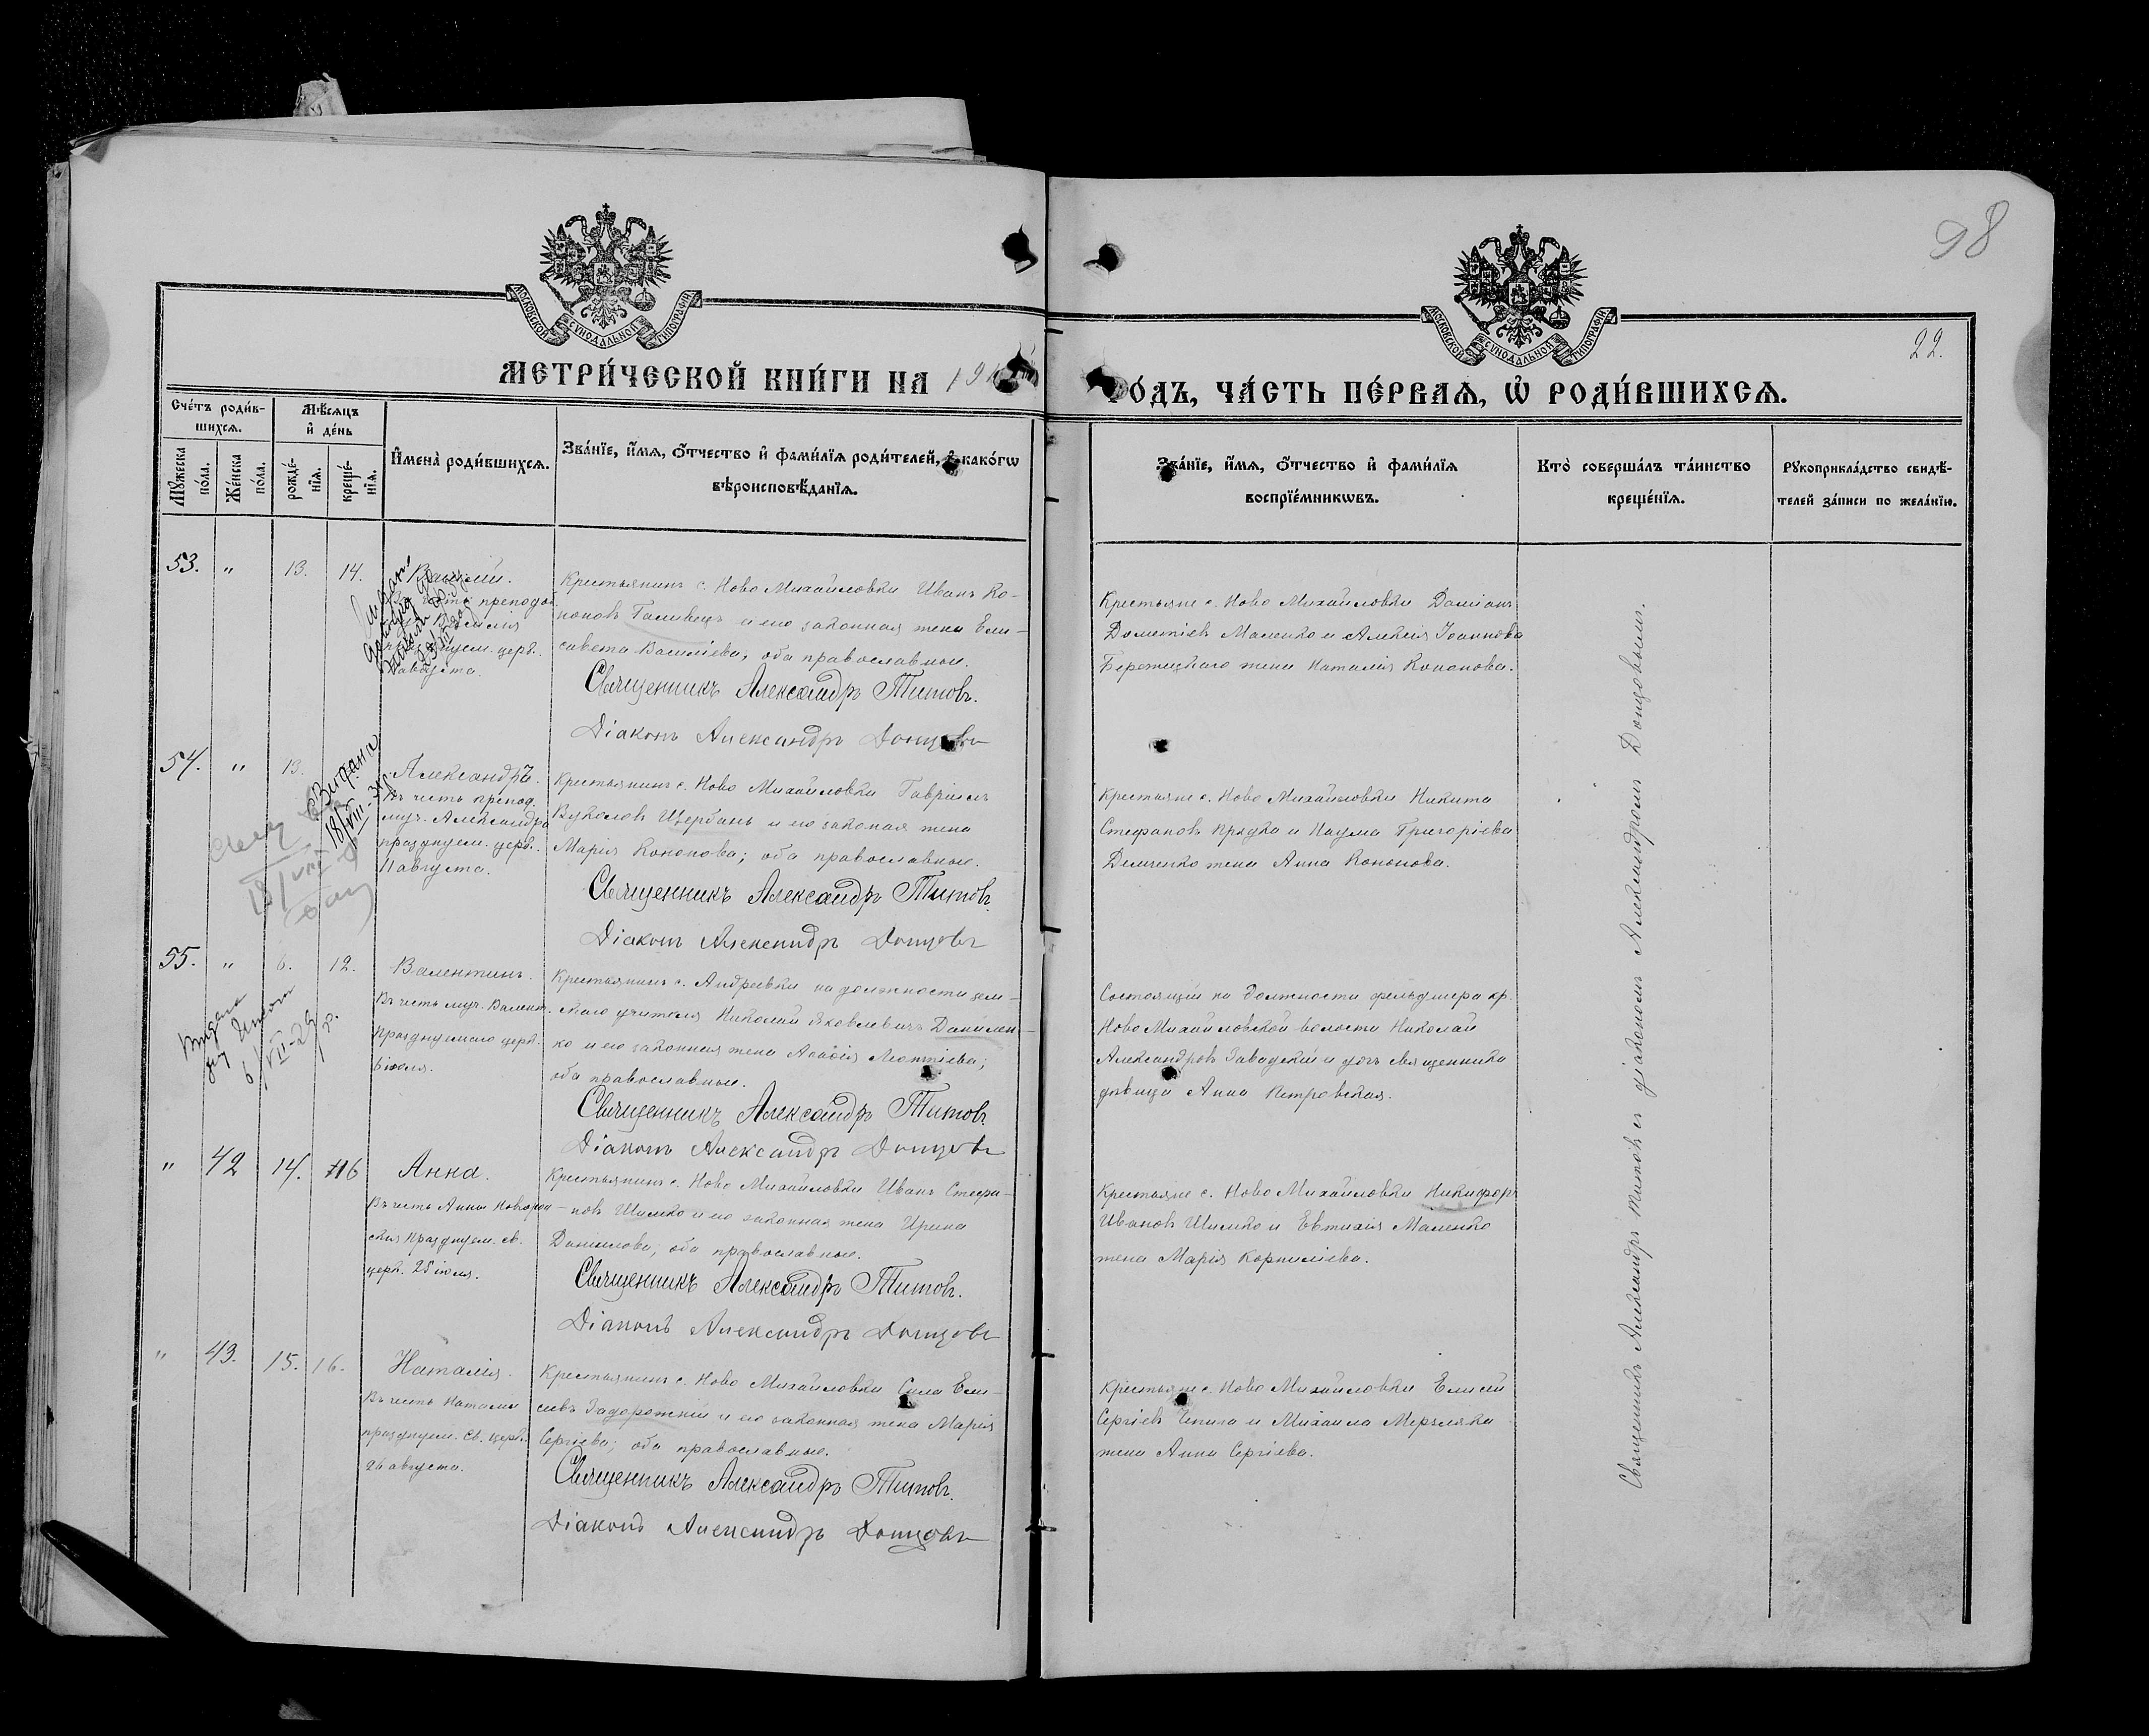 98
22.
МОСКОВСКОЙ СѴНОДАЛЬНОЙ ТИПОГРАФІИ
МОСКОВСКОЙ СѴНОДАЛЬНОЙ ТИПОГРАФІИ
МЕТРИ́ЧЕСКОЙ КНИ́ГИ НА 19
ГО́ДЪ, ЧА́СТЬ ПЕ́РВАѦ, Ѡ҆ РОДИ́ВШИХСѦ.
Сче́тъ роди́в-
шихсѧ.
Мѣ́сѧцъ
и҆ де́нь
Мꙋ́жеска по́ла.
Же́нска по́ла.
рожде́-
нїѧ.
креще́-
нїѧ.
И҆мена̀ роди́вшихсѧ.
Зва́нїе, и҆́мѧ, ѻ҆́тчество и҆ фами́лїѧ роди́телей, и҆ како́гѡ
вѣроисповѣ́данїѧ.
Зва́нїе, и҆́мѧ, ѻ҆́тчество и҆ фами́лїѧ
воспрїе́мникѡвъ.
Кто̀ соверша́лъ та́инство
креще́нїѧ.
Рꙋкоприкла́дство свидѣ́-
телей за́писи по жела́нїю.
53. " 13. 14. Василій.
преподоб.
празднуем. церк.
августа.
Крестьянинъ с. Ново Михайловки Иванъ Ко-
ноновъ Галивецъ и его законная жена Ели-
савета Василіева, оба православные.
Священникъ Александръ Титовъ.
Діаконъ Александръ Донцовъ
Крестьяне с. Ново Михайловки Даміанъ
Дометіевъ Маленко и Алексія Іоаннова
Бережецкаго жена Наталія Кононова.
54. " 13. Александръ.
Въ честь препод.
муч. Александра
празднуем. церк.
11 августа.
Выдана
18/VIII-34
18/VIII
Крестьянинъ с. Ново Михайловки Гавріилъ
Вуколовъ Щербань и его законая жена
Марія Кононова; оба православные.
Священникъ Александръ Титовъ.
Діаконъ Александръ Донцовъ
Крестьяне с. Ново Михайловки Никита
Стефановъ Прядка и Наума Григоріева
Демченко жена Анна Кононова.
55. " 6. 12. Валентинъ.
Въ честь муч. Валент.
празднуемаго церк.
6 іюля.
6/VII-29 р.
Крестьянинъ с. Андреевки на должности зем-
скаго учителя Николай Яковлевичъ Данилен-
ко и его законная жена Леонтіева;
оба православные.
Священникъ Александръ Титовъ.
Діаконъ Александръ Донцовъ
Состоящій на должности фельдшера кр.
Ново Михайловской волости Николай
Александровъ Завадскій и дочь священника
дѣвица Анна Петровская.
" 42 14. 16 Анна.
Въ честь Анны Новгород-
ския празднуем. св.
церк. 25 іюля.
Крестьянинъ с. Ново Михайловки Иванъ Стефа-
новъ Шимко и его законная жена Ирина
Даніилова; оба православные.
Священникъ Александръ Титовъ.
Діаконъ Александръ Донцовъ
Крестьяне с. Ново Михайловки Никифоръ
Ивановъ Шимко и Евтихія Маленко
жена Марія Корниліева.
" 43. 15. 16. Наталія.
Въ честь Наталіи
празднуем. св. церк.
26 августа.
Крестьянинъ с. Ново Михайловки Сила Ели-
сеевъ Задорожній и его законная жена Марія
Сергіева; оба православные.
Священникъ Александръ Титовъ.
Діаконъ Александръ Донцовъ
Крестьяне с. Ново Михайловки Елисей
Сергіевъ Чепига и Михаила Мерзляка
жена Анна Сергіева.
Священникъ Александръ Титовъ съ діакономъ Александромъ Донцовымъ.